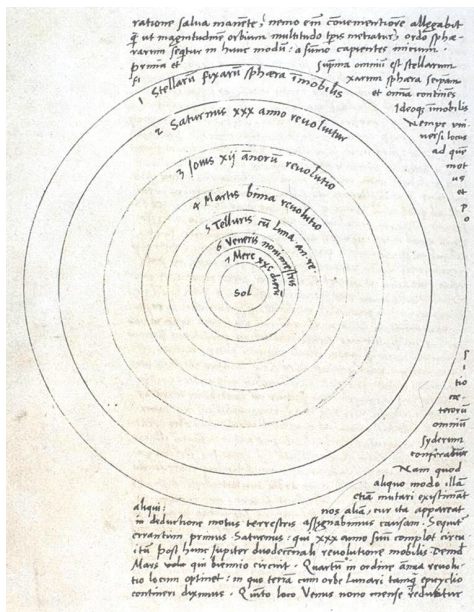 ratione salua manēte: nemo em̄ conuenientiorē allegabit
q̄ ut magnitudinē orbium multitudo tp̄is metiatur, ordo sphæ-
rarum sequitur in hunc modū: a sum̄o capientes initium.
prima et suprema omniū est stellarum
fixarum sphæra seipam
et omnia continēs
Ideoq; īmobilis
Nempe vni-
uersi locus
ad quē
mot
us
et
p
o
1 Stellarū fixarū sphæra īmobilis
2 Saturnus xxx anno reuoluitur
3 Iouis xij annorū reuolutio
4 Martis bima reuolutio
5 Telluris cū Luna an. re.
6 Veneris nonimestris
7 Merc xxc dierū
Sol
s
i
tio
cæ-
terorū
omniū
syderum
conferatur
Nam quod
aliquo modo illā
etiā mutari existimāt
aliqui: nos aliā, cur ita appareat
in deductione motus terrestris assignabimus causam. Sequit
errantium primus Saturnus: qui xxx anno suū complet circu
itū post hunc Jupiter duodecennali reuolutione mobilis Demū
Mars qui biennio circuit. Quartū in ordine annua reuolu-
tio locum optinet: in quo terrā cum orbe Lunari tanq̄ epicyclio
contineri diximus. Quinto loco Venus nono mense reducitur